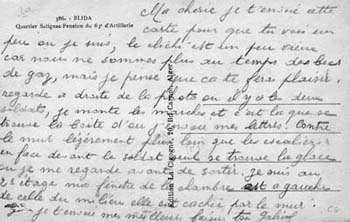 386. - BLIDA
Quartier Salignac-Fénelon du 65e d'Artillerie
Ma chérie je t'envoie cette
carte pour que tu vois un
peu ou je suis, le cliché est un peu vieux
car nous ne sommes plus au temps des becs
de gaz, mais je pense que ca te fera plaisir
regarde a droite de la photo ou il y a les deux
soldats, je monte les marches et c'est la que se
trouve la boite d'ou j'envoie mes lettres. Contre
le mur légèrement plus loin que les escaliers
en face devant le soldat seul se trouve la glace
ou je me regarde avant de sortir. Je suis au
2e étage ma fenêtre de la chambre est a gauche
de celle du milieu elle est cachée par le mur.
je t'envoie mes meilleurs baisers ton
Edition "La Cigogne", Alger